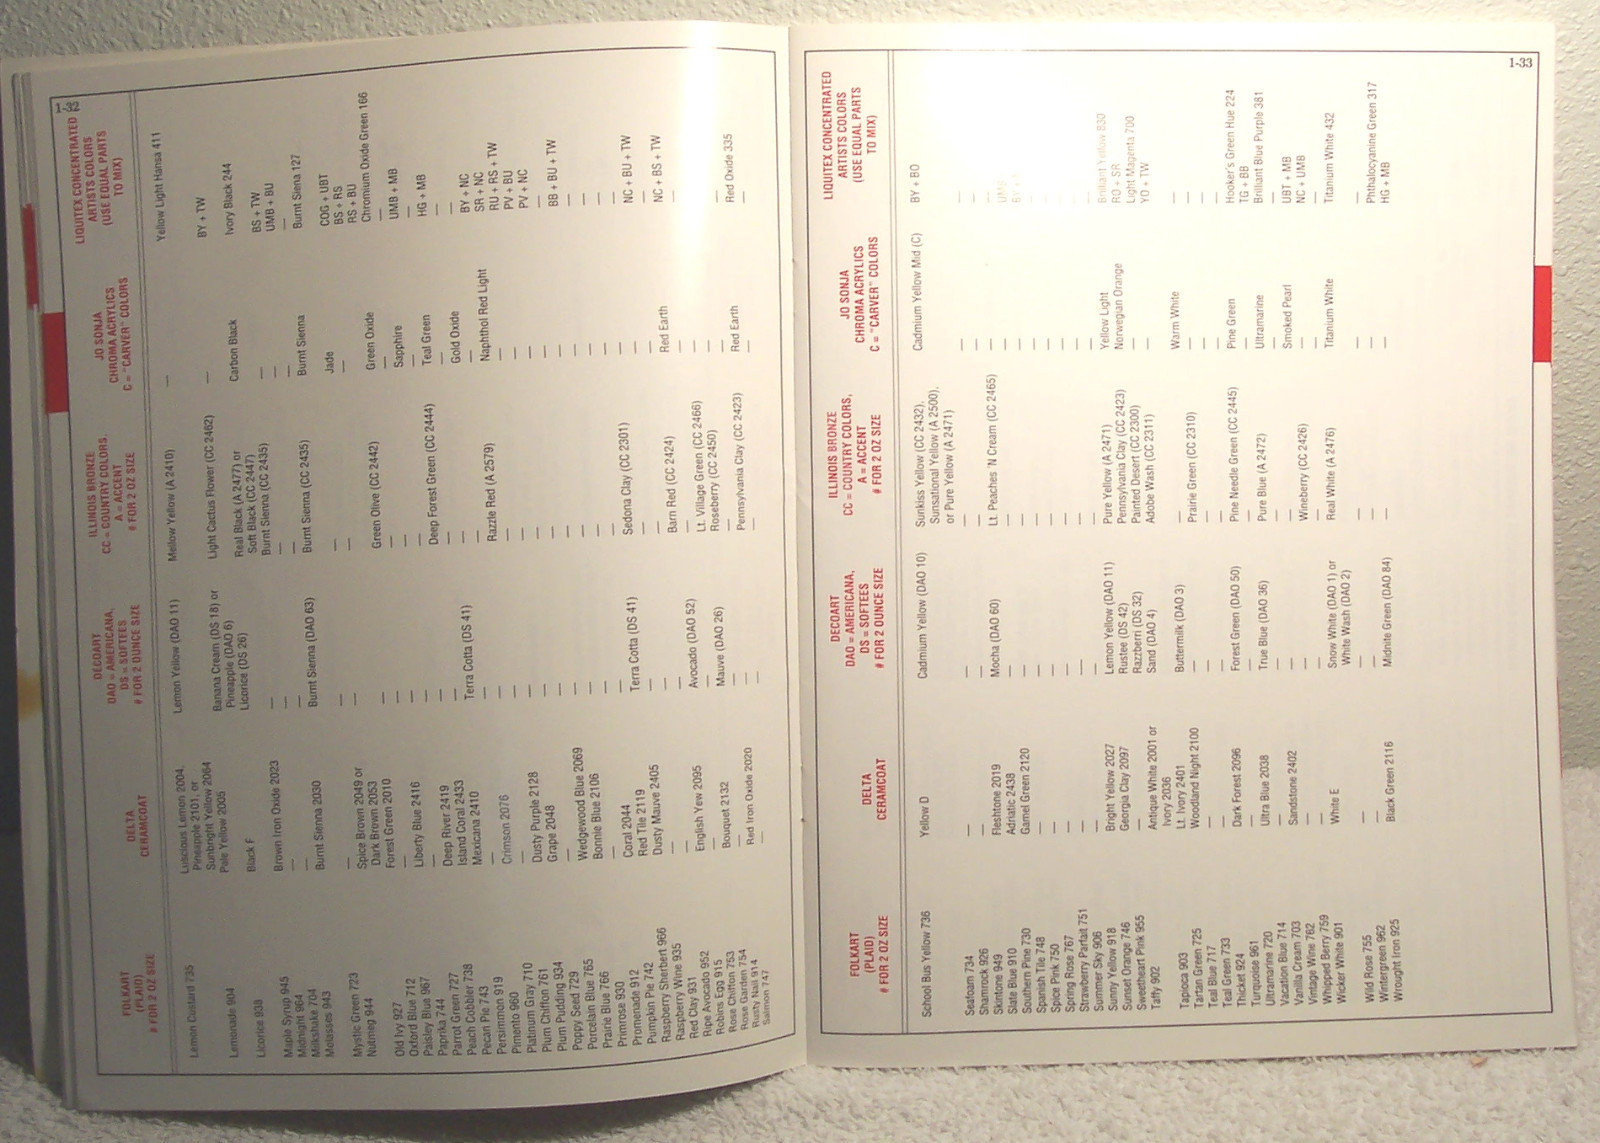 1-32
FOLKART
(PLAID)
# FOR 2 OZ SIZE
Lemon Custard 735
Lemonade 904
Licorice 938
Maple Syrup 945
Midnight 964
Milkshake 704
Molasses 943
Mystic Green 723
Nutmeg 944
Old Ivy 927
Oxford Blue 712
Paisley Blue 967
Paprika 744
Parrot Green 727
Peach Cobbler 738
Pecan Pie 743
Persimmon 919
Pimento 960
Platinum Gray 710
Plum Chiffon 761
Plum Pudding 934
Poppy Seed 729
Porcelain Blue 765
Prairie Blue 766
Primrose 930
Promenade 912
Pumpkin Pie 742
Raspberry Sherbert 966
Raspberry Wine 935
Red Clay 931
Ripe Avocado 952
Robins Egg 915
Rose Chiffon 753
Rose Garden 754
Rusty Nail 914
Salmon 747
DELTA
CERAMCOAT
Luscious Lemon 2004,
Pineapple 2101, or
Sunbright Yellow 2064
Pale Yellow 2005
Black F
Brown Iron Oxide 2023
Burnt Sienna 2030
Spice Brown 2049 or
Dark Brown 2053
Forest Green 2010
Liberty Blue 2416
Deep River 2419
Island Coral 2433
Mexicana 2410
Crimson 2076
Dusty Purple 2128
Grape 2048
Wedgewood Blue 2069
Bonnie Blue 2106
Coral 2044
Red Tile 2119
Dusty Mauve 2405
English Yew 2095
Bouquet 2132
Red Iron Oxide 2020
DECOART
DAO = AMERICANA,
DS = SOFTEES
# FOR 2 OUNCE SIZE
Lemon Yellow (DAO 11)
Banana Cream (DS 18) or
Pineapple (DAO 6)
Licorice (DS 26)
Burnt Sienna (DAO 63)
Terra Cotta (DS 41)
Terra Cotta (DS 41)
Avocado (DAO 52)
Mauve (DAO 26)
ILLINOIS BRONZE
CC = COUNTRY COLORS,
A = ACCENT
# FOR 2 OZ SIZE
Mellow Yellow (A 2410)
Light Cactus Flower (CC 2462)
Real Black (A 2477) or
Soft Black (CC 2447)
Burnt Sienna (CC 2435)
Burnt Sienna (CC 2435)
Green Olive (CC 2442)
Deep Forest Green (CC 2444)
Razzle Red (A 2579)
Sedona Clay (CC 2301)
Barn Red (CC 2424)
Lt. Village Green (CC 2466)
Roseberry (CC 2450)
Pennsylvania Clay (CC 2423)
JO SONJA
CHROMA ACRYLICS
C = "CARVER" COLORS
Carbon Black
Burnt Sienna
Jade
Green Oxide
Sapphire
Teal Green
Gold Oxide
Naphthol Red Light
Red Earth
Red Earth
LIQUITEX CONCENTRATED
ARTISTS COLORS
(USE EQUAL PARTS
TO MIX)
Yellow Light Hansa 411
BY + TW
Ivory Black 244
BS + TW
UMB + BU
Burnt Siena 127
COG + UBT
BS + RS
RS + BU
Chromium Oxide Green 166
UMB + MB
HG + MB
BY + NC
SR + NC
RU + RS + TW
PV + BU
PV + NC
BB + BU + TW
NC + BU + TW
NC + BS + TW
Red Oxide 335
1-33
FOLKART
(PLAID)
# FOR 2 OZ SIZE
School Bus Yellow 736
Seafoam 734
Shamrock 926
Skintone 949
Slate Blue 910
Southern Pine 730
Spanish Tile 748
Spice Pink 750
Spring Rose 767
Strawberry Parfait 751
Summer Sky 906
Sunny Yellow 918
Sunset Orange 746
Sweetheart Pink 955
Taffy 902
Tapioca 903
Tartan Green 725
Teal Blue 717
Teal Green 733
Thicket 924
Turquoise 961
Ultramarine 720
Vacation Blue 714
Vanilla Cream 703
Vintage Wine 762
Whipped Berry 759
Wicker White 901
Wild Rose 755
Wintergreen 962
Wrought Iron 925
DELTA
CERAMCOAT
Yellow D
Fleshtone 2019
Adriatic 2438
Gamel Green 2120
Bright Yellow 2027
Georgia Clay 2097
Antique White 2001 or
Ivory 2036
Lt. Ivory 2401
Woodland Night 2100
Dark Forest 2096
Ultra Blue 2038
Sandstone 2402
White E
Black Green 2116
DECOART
DAO = AMERICANA,
DS = SOFTEES
# FOR 2 OUNCE SIZE
Cadmium Yellow (DAO 10)
Mocha (DAO 60)
Lemon Yellow (DAO 11)
Rustee (DS 42)
Razzberri (DS 32)
Sand (DAO 4)
Buttermilk (DAO 3)
Forest Green (DAO 50)
True Blue (DAO 36)
Snow White (DAO 1) or
White Wash (DAO 2)
Midnite Green (DAO 84)
ILLINOIS BRONZE
CC = COUNTRY COLORS,
A = ACCENT
# FOR 2 OZ SIZE
Sunkiss Yellow (CC 2432),
Sunsational Yellow (A 2500),
or Pure Yellow (A 2471)
Lt Peaches 'N Cream (CC 2465)
Pure Yellow (A 2471)
Pennsylvania Clay (CC 2423)
Painted Desert (CC 2300)
Adobe Wash (CC 2311)
Prairie Green (CC 2310)
Pine Needle Green (CC 2445)
Pure Blue (A 2472)
Wineberry (CC 2426)
Real White (A 2476)
JO SONJA
CHROMA ACRYLICS
C = "CARVER" COLORS
Cadmium Yellow Mid (C)
Yellow Light
Norwegian Orange
Warm White
Pine Green
Ultramarine
Smoked Pearl
Titanium White
LIQUITEX CONCENTRATED
ARTISTS COLORS
(USE EQUAL PARTS
TO MIX)
BY + BO
Brilliant Yellow 830
RO + SR
Light Magenta 700
YO + TW
Hooker's Green Hue 224
TG + BB
Brilliant Blue Purple 381
UBT + MB
NC + UMB
Titanium White 432
Phthalocyanine Green 317
HG + MB